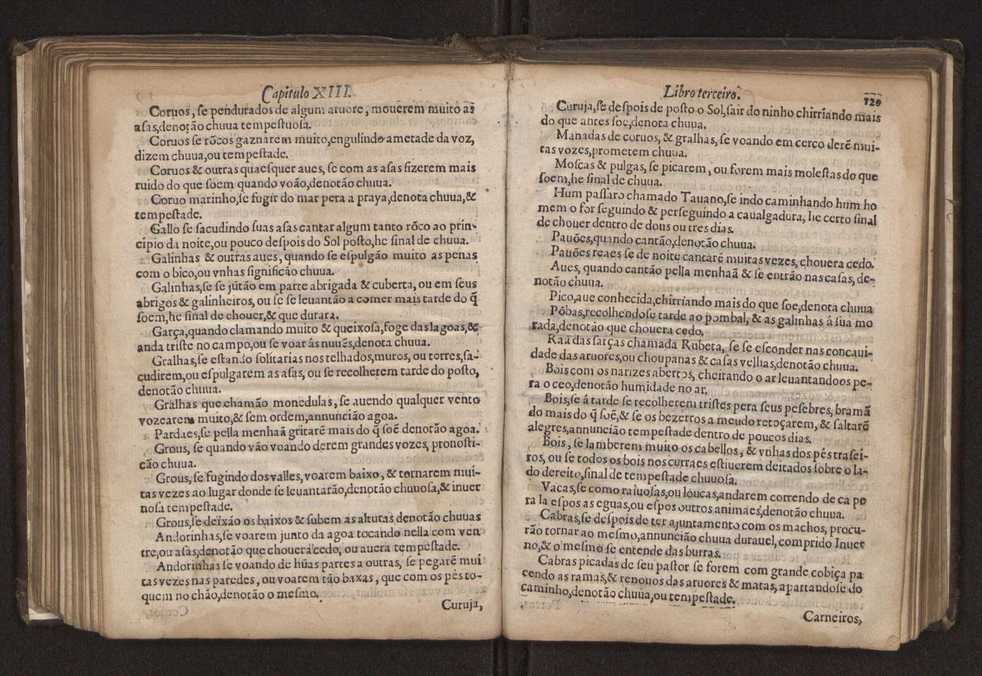 Capitulo XIII.
Coruos, se pendurados de algum aruore, mouerem muito as
asas,denotão chuua tempestuosa.
Coruos se rõcos gaznarem muito,engulindo ametade da voz,
dizem chuua,ou tempestade.
Coruos & outras quaesquer aues, se com as asas fizerem mais
ruido do que soem quando voão,denotão chuua.
Coruo marinho,se fugir do mar pera a praya,denota chuua,&
tempestade.
Gallo se sacudindo suas asas cantar algum tanto rõco ao prin-
cipio da noite,ou pouco despois do Sol posto,he sinal de chuua.
Galinhas & outras aues, quando se espulgão muito as penas
com o bico,ou vnhas significão chuua.
Galinhas,se se jũtão em parte abrigada & cuberta, ou em seus
abrigos & galinheiros, ou se se leuantão a comer mais tarde do q̃
soem,he sinal de chouer,& que durara.
Garça,quando clamando muito & queixosa,foge das lagoas,&
anda triste no campo,ou se voar âs nuuẽs,denota chuua.
Gralhas,se estando solitarias nos telhados,muros, ou torres,sa-
cudirem,ou espulgarem as asas, ou se recolherem tarde do posto,
denotão chuua.
Gralhas que chamão monedulas, se auendo qualquer vento
vozearem muito,& sem ordem,annuncião agoa.
Pardaes,se pella menhaã gritarẽ mais do q̃ soẽ denotão agoa.
Grous, se quando vão voando derem grandes vozes, pronosti-
cão chuua.
Grous, se fugindo dos valles, voarem baixo, & tornarem mui-
tas vezes ao lugar donde se leuantarão,denotão chuuosa,& inuer
nosa tempestade.
Grous,se deixão os baixos & subem as alturas denotão chuuas
Andorinhas,se voarem junto da agoa tocando nella com ven
tre,ou asas,denotão que chouera cedo, ou auera tempestade.
Andorinhas se voando de hũas partes a outras, se pegarẽ mui
tas vezes nas paredes, ou voarem tão baxas, que com os pès to-
quem no chão,denotão o mesmo.
Curuja,
Libro terceiro.
120
Curuja,se despois de posto o Sol,sair do ninho chirriando mais
do que antes soe,denota chuua.
Manadas de coruos, & gralhas, se voando em cerco derẽ mui-
tas vozes,prometem chuua.
Moscas & pulgas, se picarem, ou forem mais molestas do que
soem,he sinal de chuua.
Hum passaro chamado Tauano,se indo caminhando hum ho
mem o for seguindo & perseguindo a caualgadura, he certo sinal
de chouer dentro de dous ou tres dias.
Pauões,quando cantão,denotão chuua.
Pauões reaes se de noite cantarẽ muitas vezes, chouera cedo.
Aues, quando cantão pella menhaã & se entrão nas casas, de-
notão chuua.
Pico,aue conhecida,chirriando mais do que soe,denota chuua
Põbas,recolhendose tarde ao pombal, & as galinhas â sua mo
rada,denotão que chouera cedo.
Raã das sarças chamada Rubeta, se se esconder nas concaui-
dade das aruores,ou choupanas & casas velhas,denotão chuua.
Bois com os narizes abertos, cheirando o ar leuantandoos pe-
ra o ceo,denotão humidade no ar.
Bois,se â tarde se recolherem tristes pera seus pesebres, bramã
do mais do q̃ soẽ,& se os bezerros a meudo retoçarem, & saltarẽ
alegres,annuncião tempestade dentro de poucos dias.
Bois, se lamberem muito os cabellos, & vnhas dos pés trasei-
ros, ou se todos os bois nos curraes estiuerem deitados sobre o la-
do dereito,sinal de tempestade chuuosa.
Vacas,se como raiuosas,ou loucas,andarem correndo de ca pe
ra la espos as eguas,ou espos outros animaes,denotão chuua.
Cabras,se despois de ter ajuntamento com os machos, procu-
rão tornar ao mesmo,annuncião chuua durauel, comprido Inuer
no,& o mesmo se entende das burras.
Cabras picadas de seu pastor se forem com grande cobiça pa
cendo as ramas,& renouos das aruores & matas, apartandose do
caminho,denotão chuua,ou tempestade.
Carneiros,